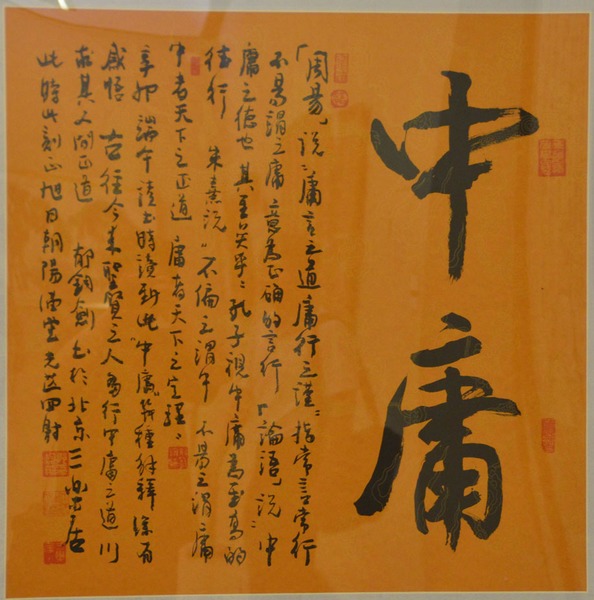 中庸
「周易」说：庸言之道庸行之谨：指常言常行
不易谓之庸 意为正确的言行『论语』说：中
庸之德也 其至矣乎：孔子视中庸为至高的
德行 朱熹说“不偏之谓中 不易之谓庸
中者天下之正道 庸者天下之定理：
辛卯端午读书时读到此“中庸”几种解释 深有
感悟 古往今来圣贤之人多行中庸之道
求其人间正道 郁钧剑书于北京三 居
此时此刻正旭日朝阳满堂光芒四射